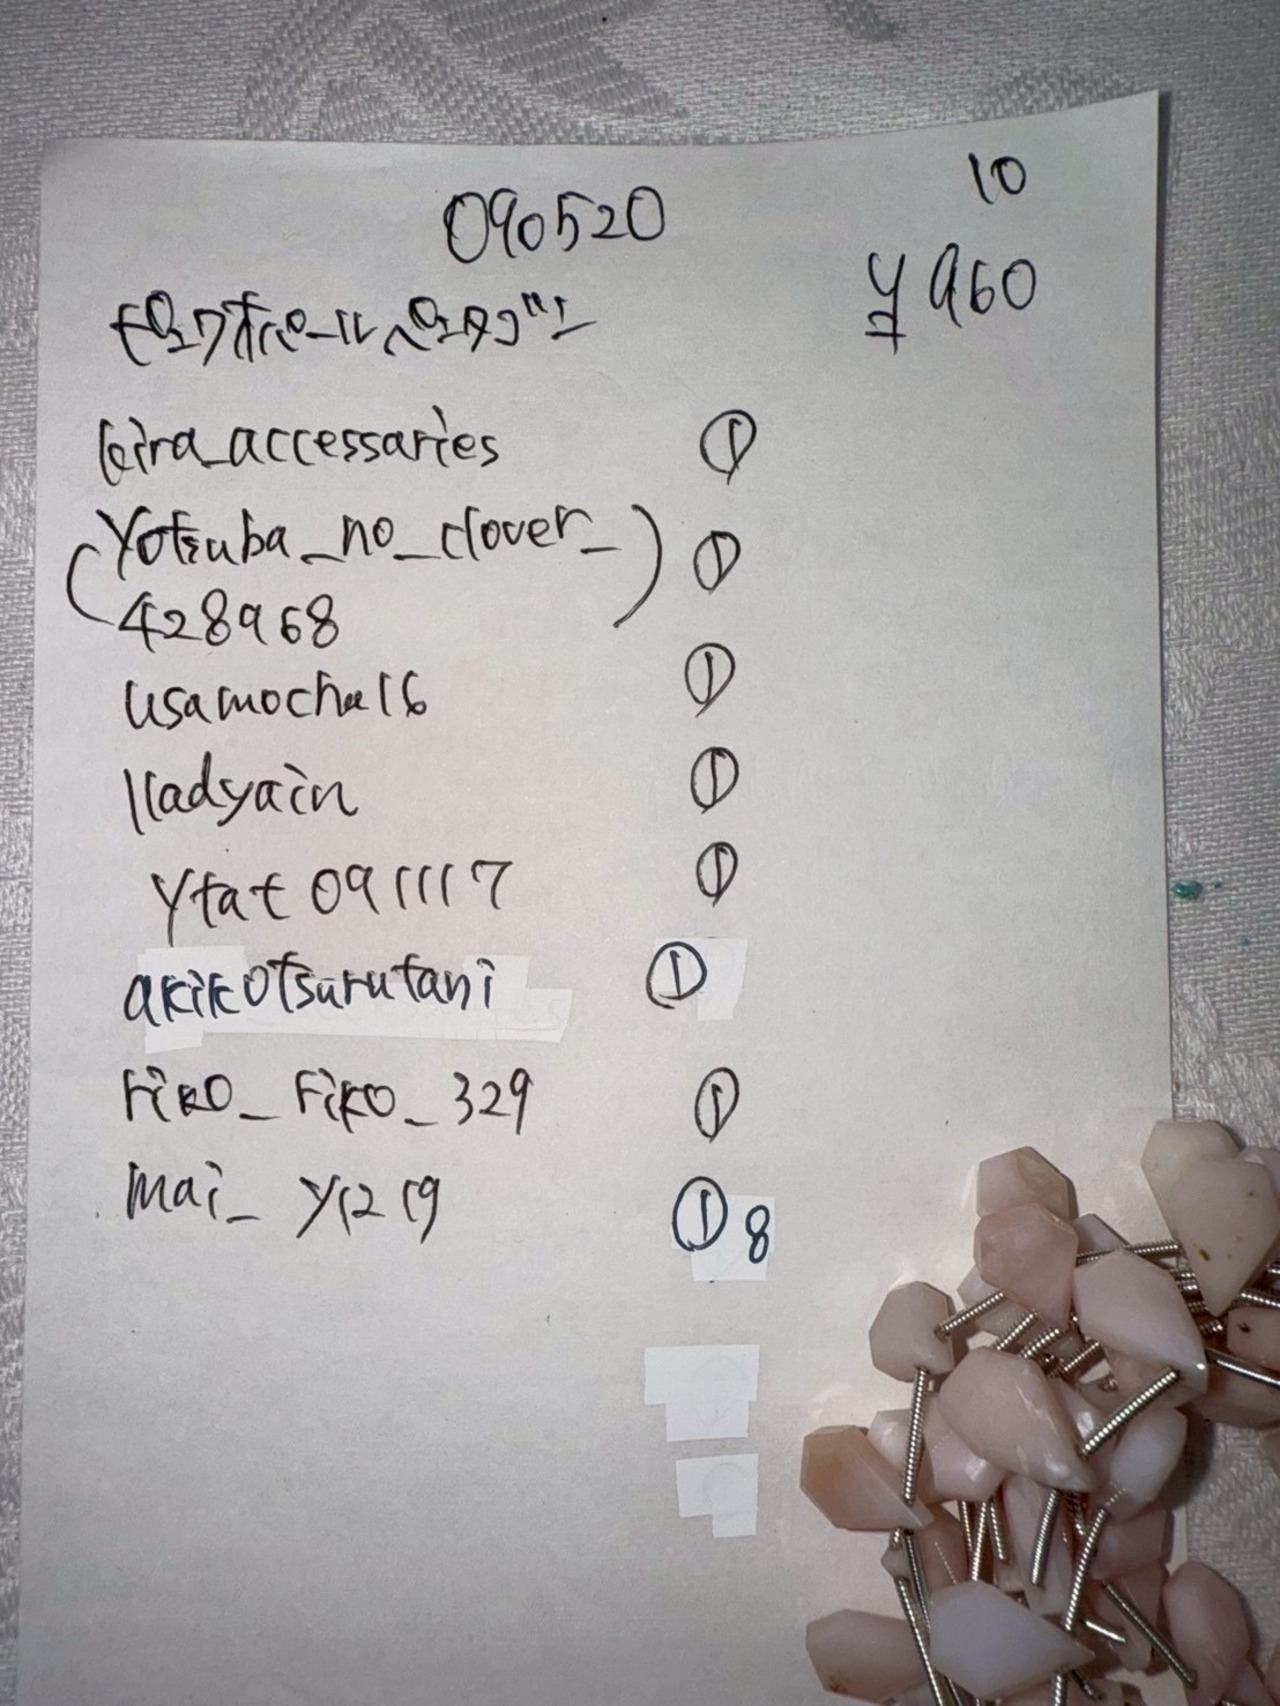 090520
10
¥960
ピンクオパールペンタゴン
kira_accessaries ①
(yotsuba_no_clover_
428968) ①
usamocha16 ①
lladyain ①
ytat091117 ①
akikotsurutani ①
riko_riko_329 ①
mai_y1219 ① 8